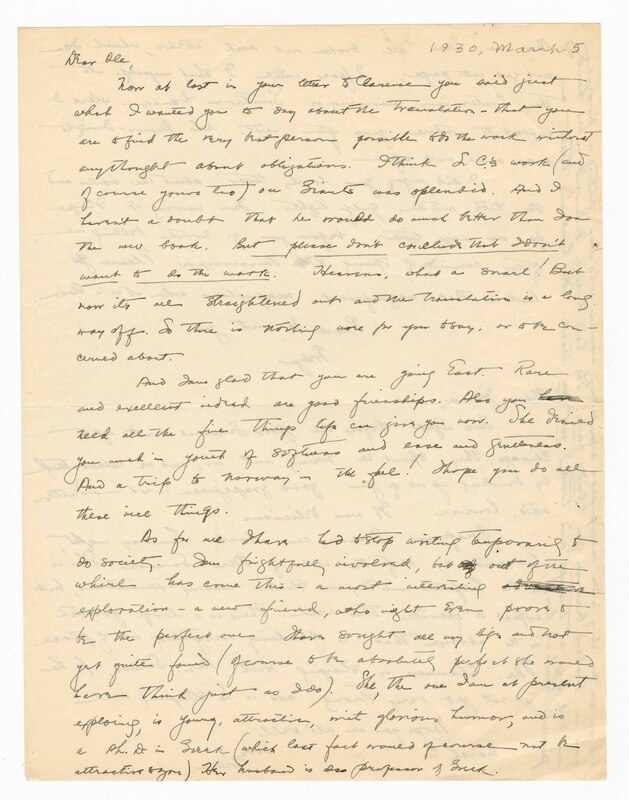 1930, March 5
Dear Ole,
Now at last in your letter to Clarence you said just
what I wanted you to say about the translation - that you
are to find the very best person possible to do the work without
any thought about obligations. I think L. C.'s work (and
of course yours too) on Giants was splendid. And I
haven't a doubt that he would do much better than I on
the new book. But please don't conclude that I don't
want to do the work. Heavens, what a snarl! But
now its all straightened out and the translation is a long
way off. So there is nothing more for you to say, or to be con-
cerned about.
And I am glad that you are going East. Rare
and excellent indeed are good friendships. Also you
need all the fine things life can give you now. She denied
you much - youth of softness and ease and gentleness.
And a trip to Norway in the fall! I hope you do all
these well things.
As for me I have had to stop writing temporarily to
do society. I am frightfully involved, but out of the
whirl has come this - a most interesting
exploration - a new friend, who might even prove to
be the perfect one I have sought all my life and not
yet quite found (of course to be absolutely perfect she would
have to think just as I do). She, the one I am at present
exploring, is young, attractive, with glorious humor, and is
a Ph. D in Greek (which last fact would of course not be
attractive to you) Her husband is also professor of Greek.